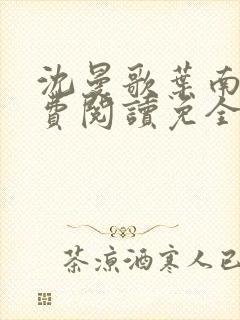 沈晏歌葉南
費閱讀免全
茶涼酒寒人已